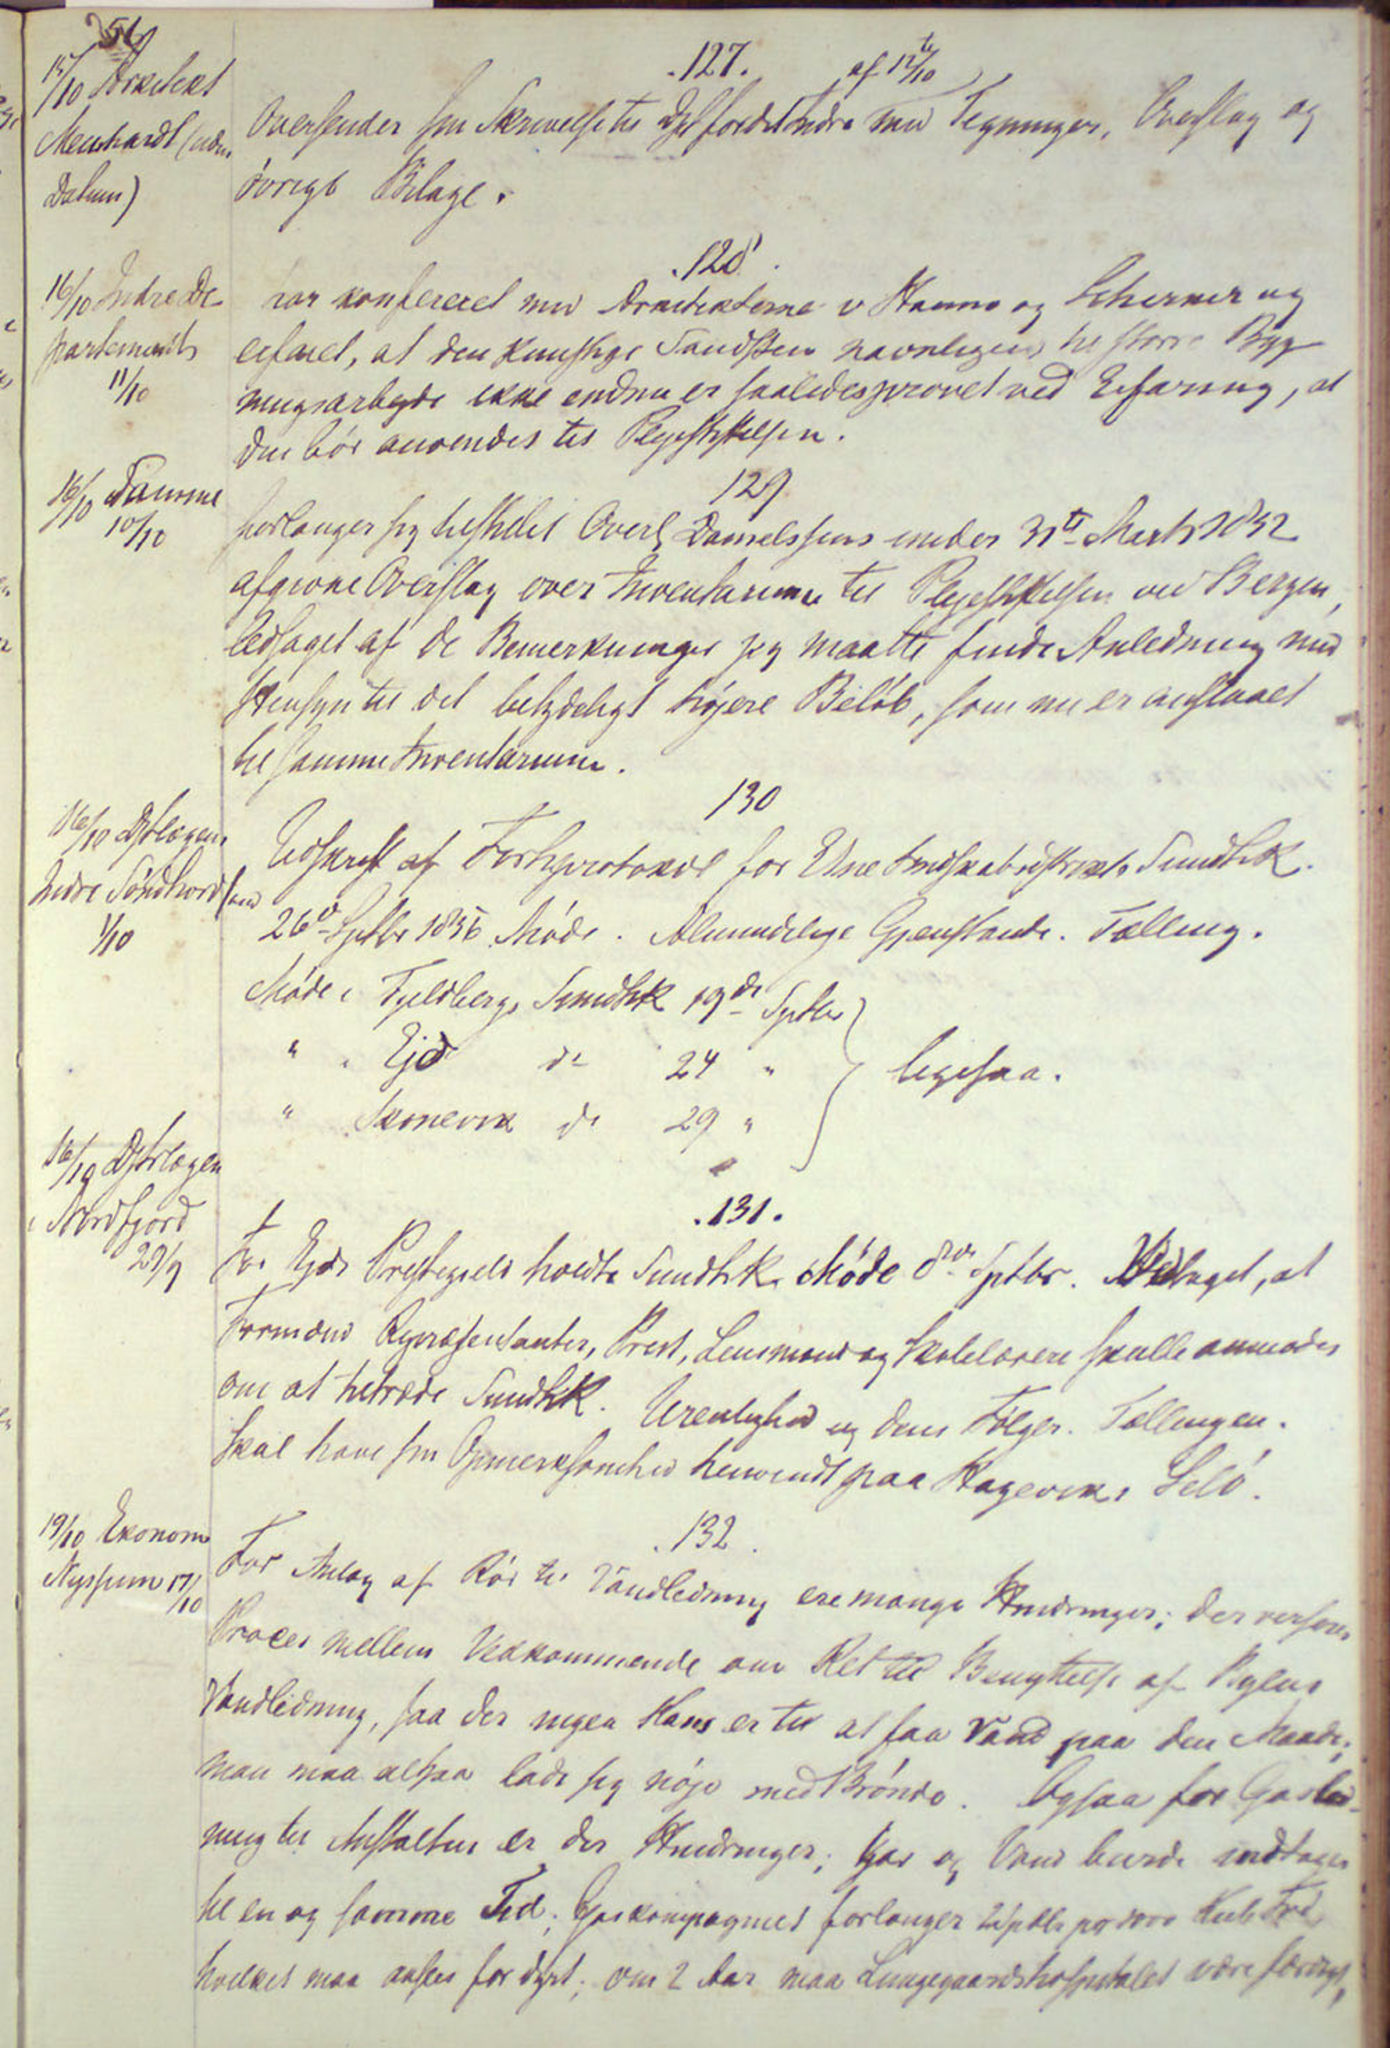 51
127.
15/10 Arkitekt
Meinhardt (uden
Datum)
af 12te/10
Oversender sin Skrivelse til Dpt for det Indre med Tegninger, Overslag og
övrige Bilage.
128.
16/10 Indre De-
partements
11/10
har konfereret med Arkitekterne v Hanno og Schirmer og
erfaret, at den kunstige Sandsten navnligen til större Byg-
ningsarbejde ikke endnu er saaledes prövet ved Erfaring, at
den bör anvendes til Plejestiftelsen.
129
16/10 Samme
10/10
forlanger sig tilstillet Overl. Danielssens under 31te Marts 1852
afgivne Overslag over Inventarium til Plejestiftelsen ved Bergen,
ledsaget af de Bemerkninger jeg maatte finde Anledning med
Hensyn til det betydeligt höjere Belöb, som nu er anslaaet
til samme Inventarium.
130
16/10 Dstlægen
Indre Söndhordland
1/10
Udskrift af Forhprotokol for Etne Sundhk.
26de Septbr 1856 Möde. Almindelige Gjenstande. Tælling.
Möde i Fjeldbergs Sundhk 19de Septbr
" " Ejd do 24 "
" Skonevik do 29 "
ligesaa.
131.
16/10 Dstrlægen
i Nordfjord
29/9
For Ejds Prestegjeld holdte Sundhk. Möde 8de Septbr. Vedtaget, at
Formænd Repræsentanter, Prest, Lensmand og Skolelærere skulle anmodes
om at tiltræde Sundhk. Urenlighed og dens Fölger. Tællingen.
Skal have sin Opmerksomhed henvendt paa Hagevik, Selö.
132.
19/10 Ekonom
Nyssum 17/10
For Anlæg af Rör til Vandledning ere mange Hindringer; der verserer
Proces mellem Vedkommende om Ret til Benyttelse af Byens
Vandledning, saa der ingen Haab er til at faa Vand paa den Maade;
man maa altsaa lade sig nöje med Brönde. Ogsaa for Gasled-
ning til Anstalten er der Hindringer; Gas og Vand burde indtages
til en og samme Tid; Gaskompagniet forlanger Spdlr pr 1000 Kub Fod,
hvilket maa ansees for dyrt; om 2 Aar maa Lungegaardshospitalet være færdigt,